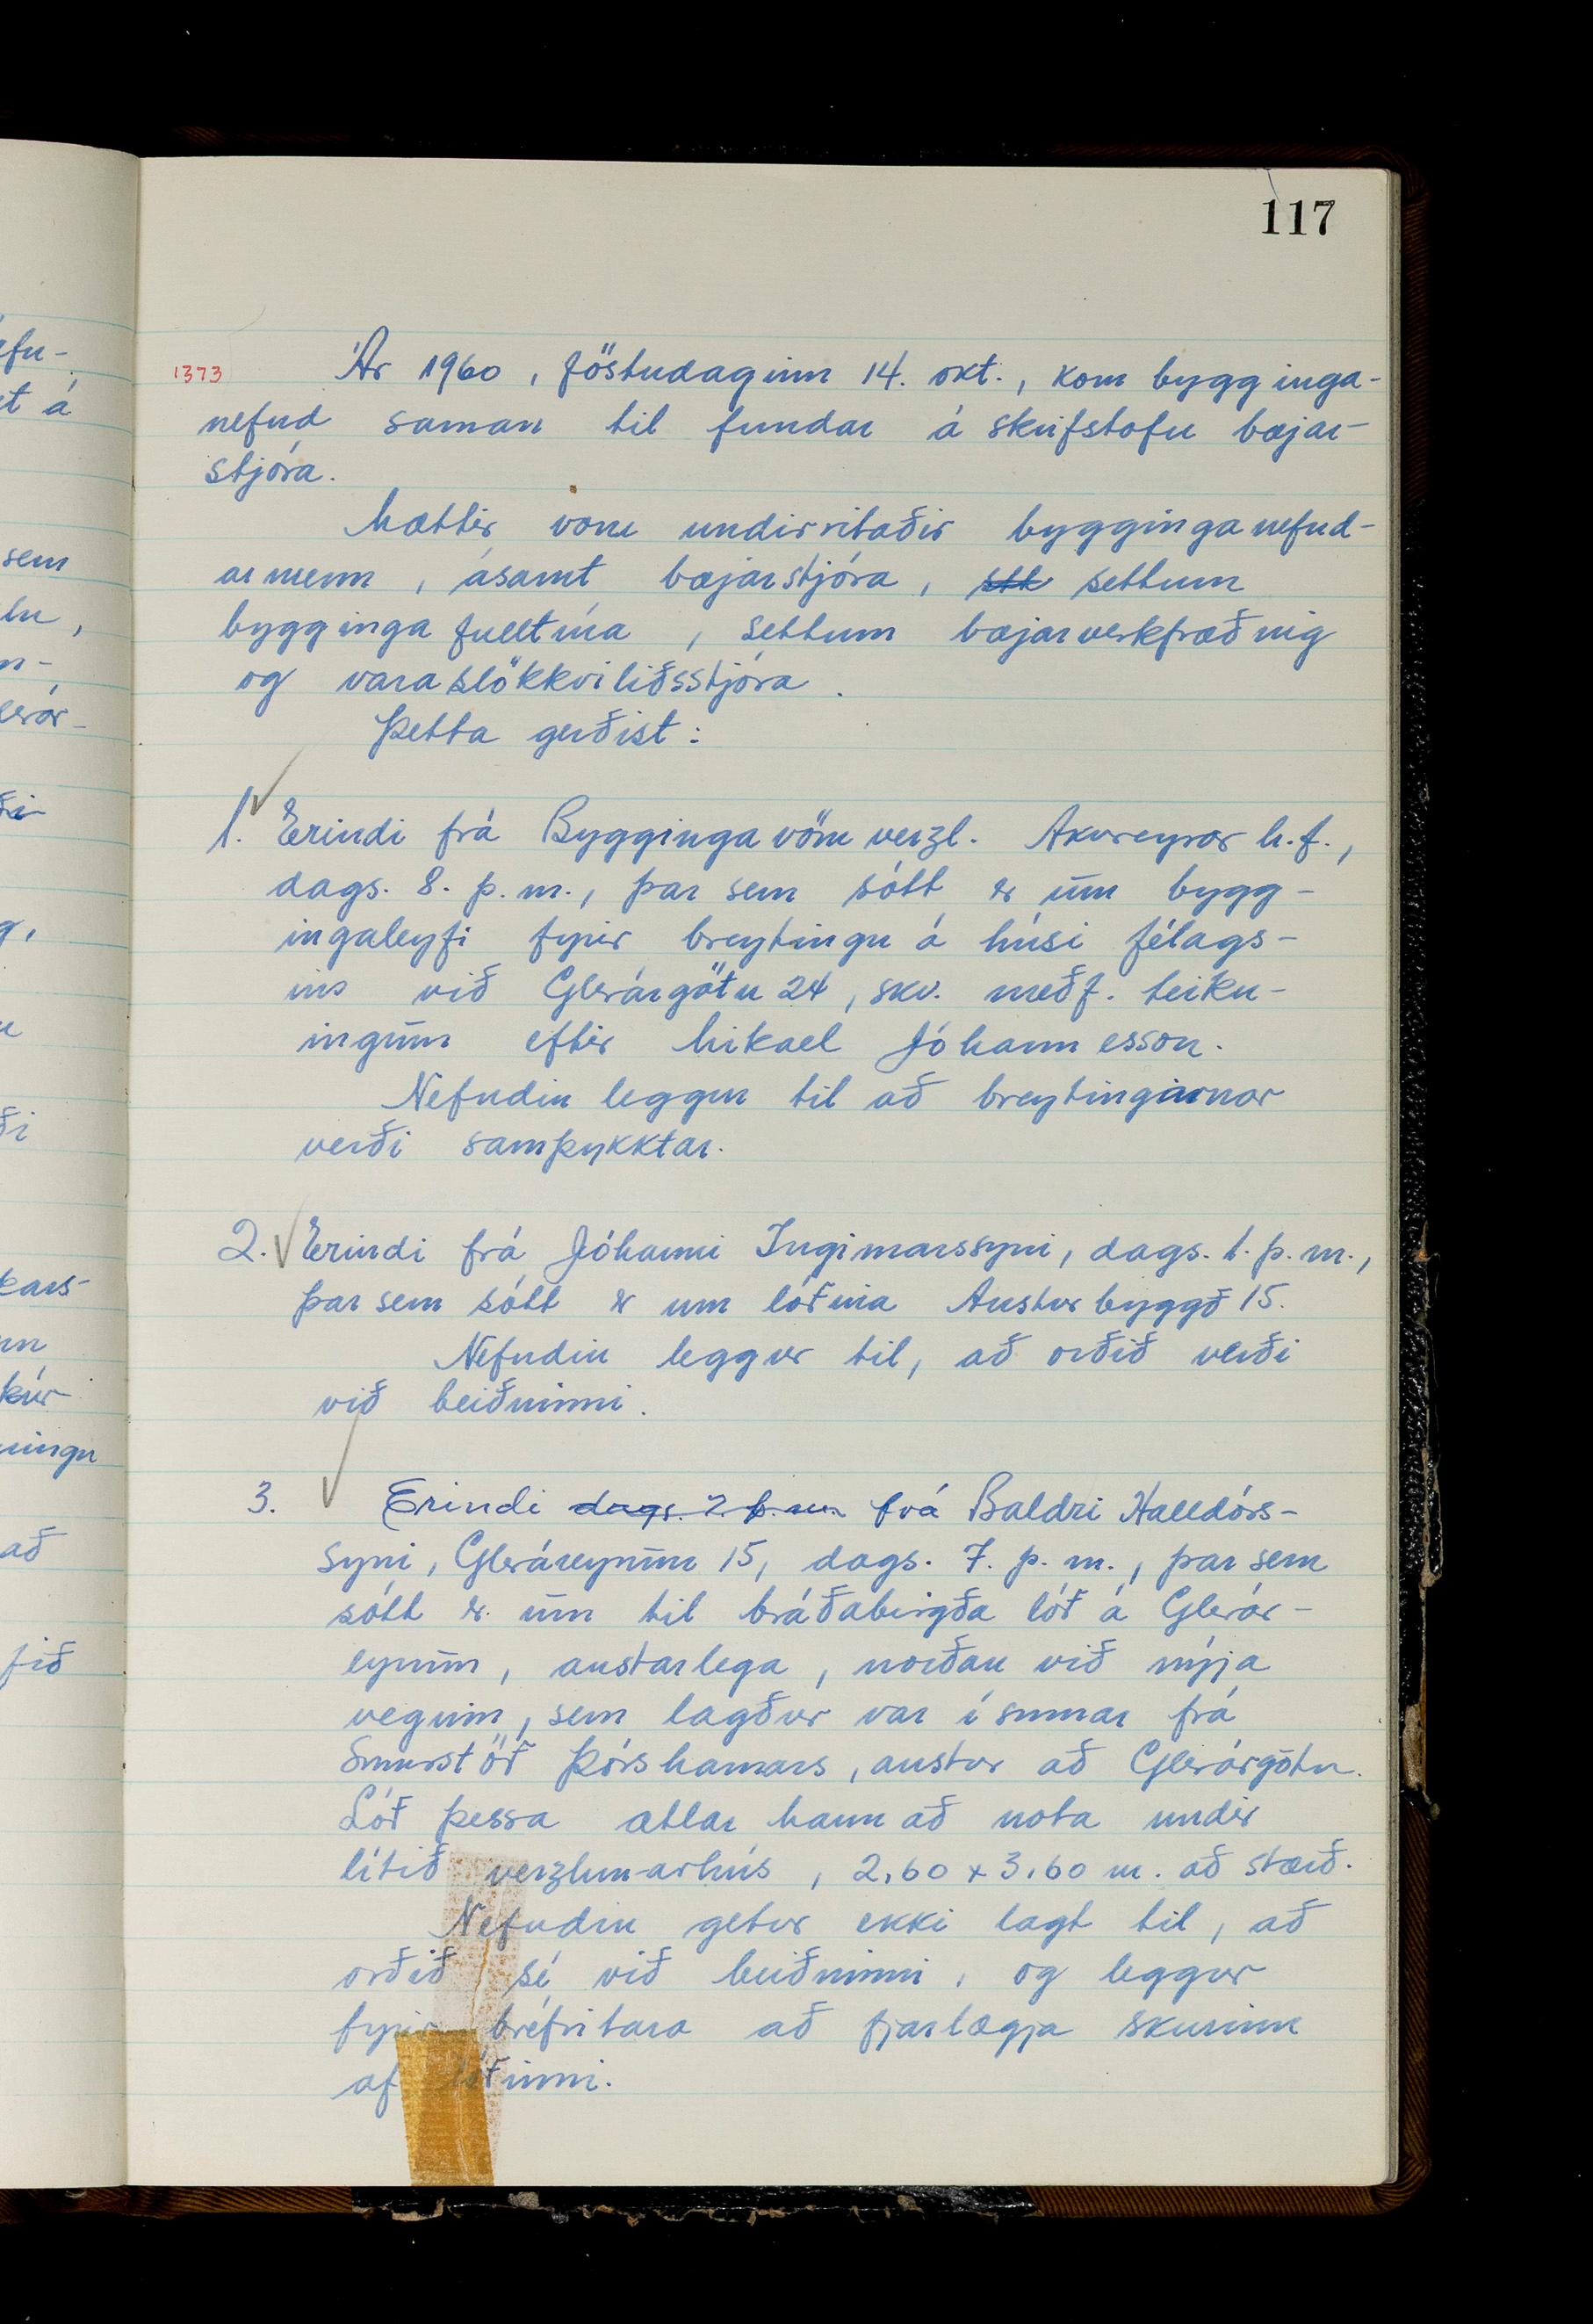 117
1373
Ár 1960, föstudaginn 14. okt., kom bygginga-
nefnd saman til fundar á skrifstofu bæjar-
stjóra.
Mættir voru undirritaðir bygginganefnd-
armenn, ásamt bæjarstjóra, settum
byggingafulltrúa, settum bæjarverkfræðing
og varaslökkviliðsstjóra.
Þetta gerðist:
1. Erindi frá Byggingavöruverzl. Akureyrar h.f.,
dags. 8. þ.m., þar sem sótt er um bygg-
ingaleyfi fyrir breytingu á húsi félags-
ins við Glerárgötu 24, skv. meðf. teikn-
ingum eftir Mikael Jóhannesson.
Nefndin leggur til að breytingarnar
verði samþykktar.
2. Erindi frá Jóhanni Ingimarssyni, dags. 1. þ.m.,
þar sem sótt er um lóðina Austurbyggð 15.
Nefndin leggur til, að orðið verði
við beiðninni.
3. Erindi dags. 2. þ.m. frá Baldri Halldórs-
syni, Gleráreyrum 15, dags. 7. þ.m., þar sem
sótt er um til bráðabirgða lóð á Glerár-
eyrum, austarlega, norðan við nýja
veginn, sem lagður var í sumar frá
Smurstöð Þórshamars, austur að Glerárgötu.
Lóð þessa ætlar hann að nota undir
lítið verzlunarhús, 2,60 x 3,60 m. að stærð.
Nefndin getur ekki lagt til, að
orðið sé við beiðninni, og leggur
fyrir bréfritara að fjarlægja skúrinn
af lóðinni.